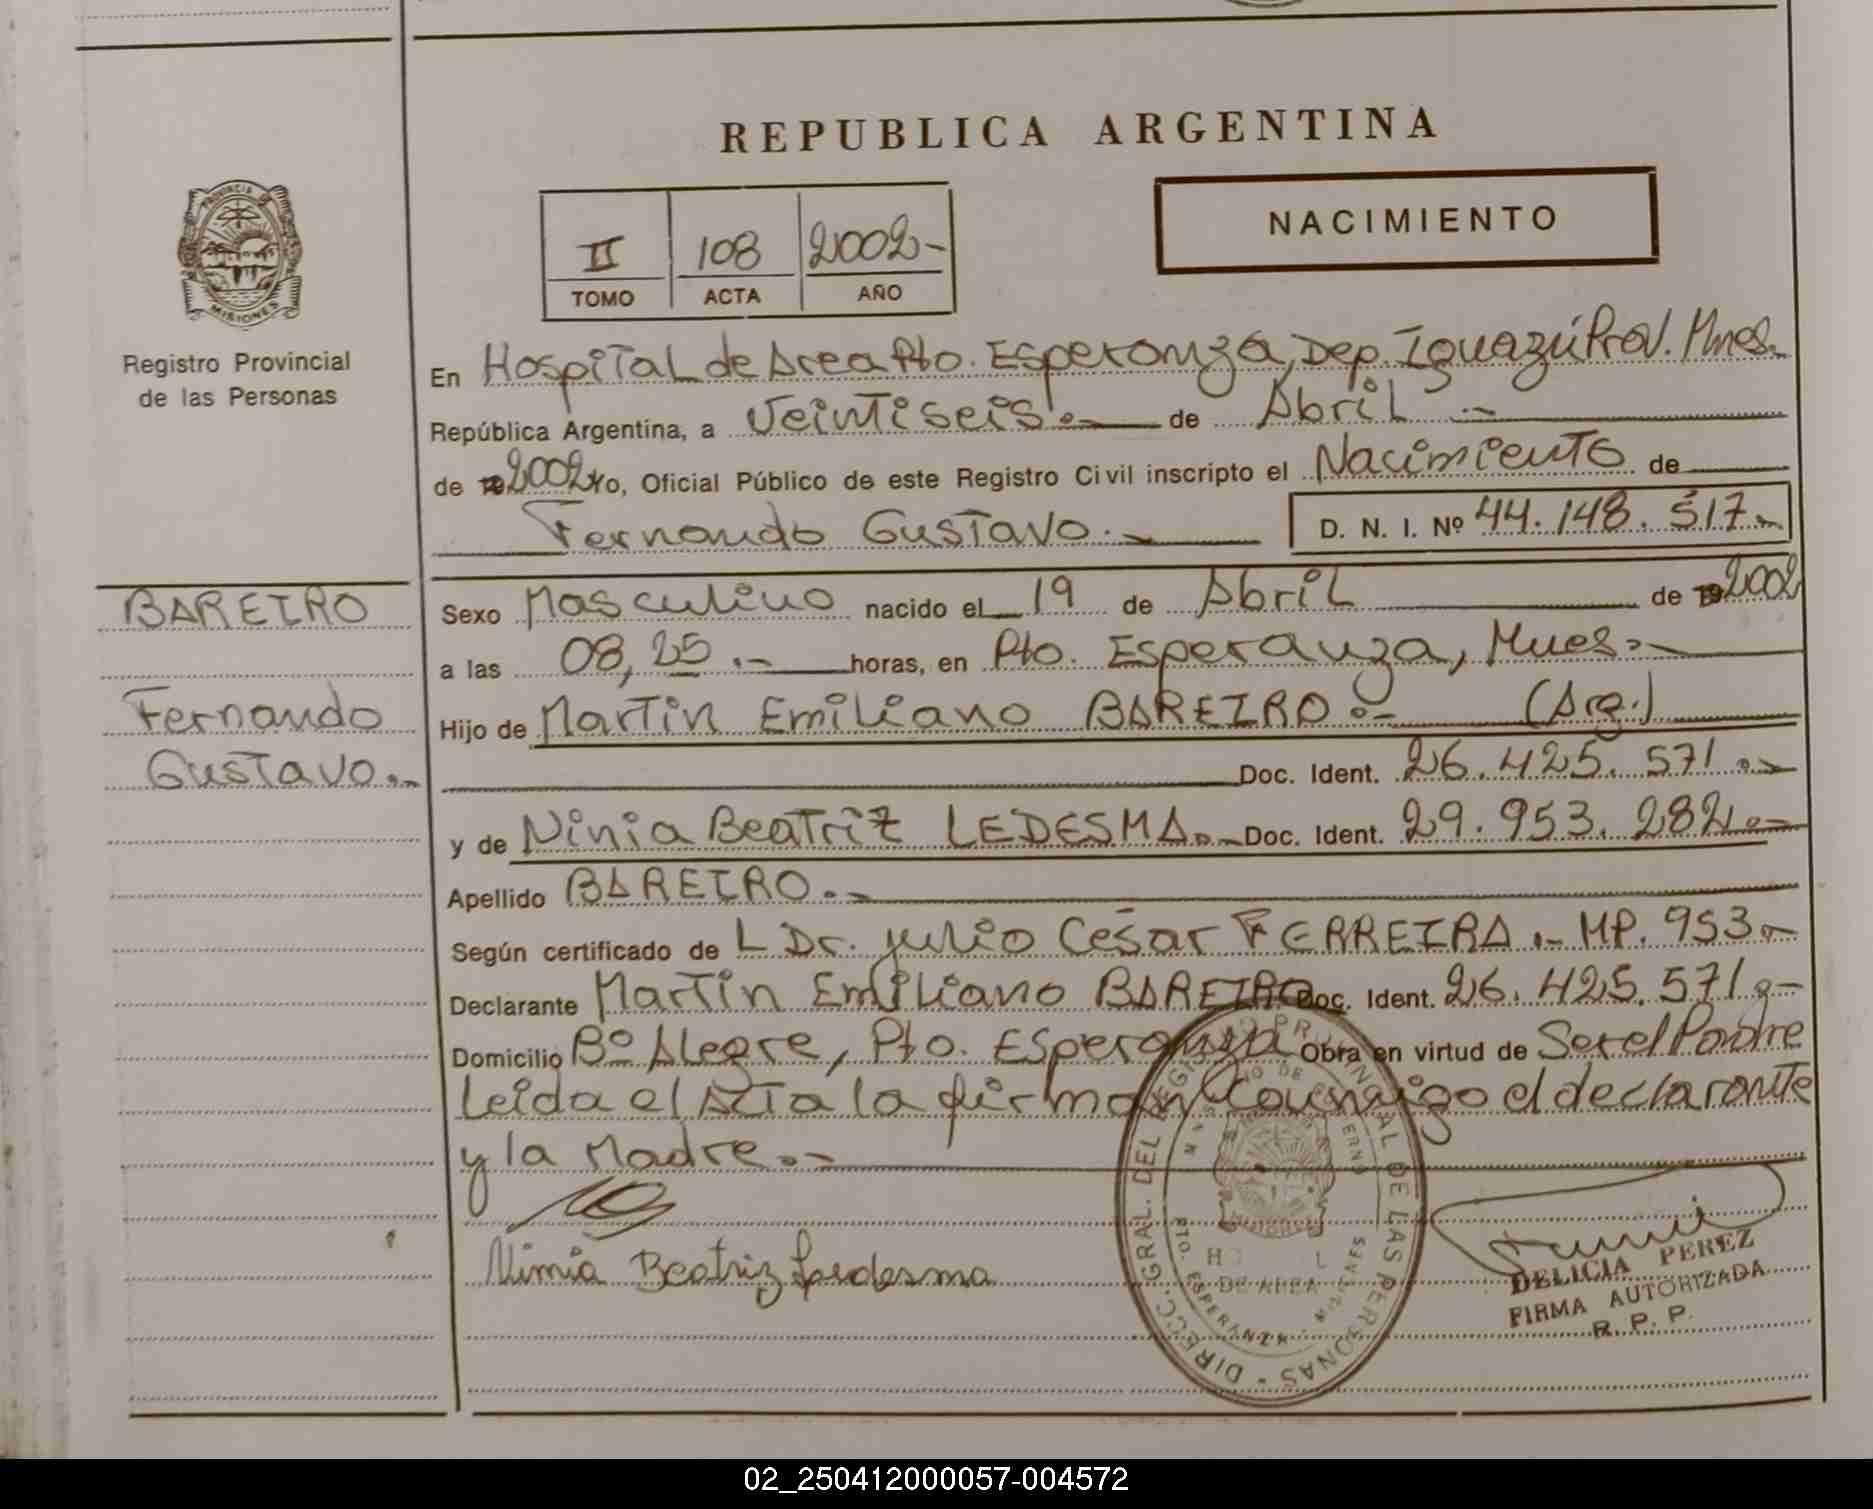 REPUBLICA ARGENTINA
NACIMIENTO
II 108 2002-
TOMO ACTA AÑO
PROVINCIA DE
MISIONES
Registro Provincial
de las Personas
En Hospital de Area Pto. Esperanza, Dep. Iguazú Prov. Mnes.
República Argentina, a Veintiseis.- de Abril.-
de 2002 Yo, Oficial Público de este Registro Civil inscripto el Nacimiento de
Fernando Gustavo.- D. N. I. Nº 44.148.517.-
BAREIRO
Fernando
Gustavo.-
Sexo Masculino nacido el 19 de Abril de 2002
a las 08,25.- horas, en Pto. Esperanza, Mnes.-
Hijo de Martin Emiliano BAREIRO.- (Arg.)
Doc. Ident. 26.425.571.-
y de Ninia Beatriz LEDESMA.- Doc. Ident. 29.953.282.-
Apellido BAREIRO.-
Según certificado de L Dr. Julio César FERREIRA.- MP. 953.-
Declarante Martin Emiliano BAREIRO Doc. Ident. 26.425.571.-
Domicilio Bº Alegre, Pto. Esperanza Obra en virtud de Ser el Padre
Leida el Acta la firman Conmigo el declarante
y la Madre.-
Nimia Beatriz Ledesma
DIRECC. GRAL. DEL REGISTRO PROVINCIAL DE LAS PERSONAS
DE AREA
PTO. ESPERANZA - MISIONES
DELICIA PEREZ
FIRMA AUTORIZADA
R. P. P.
02_250412000057-004572